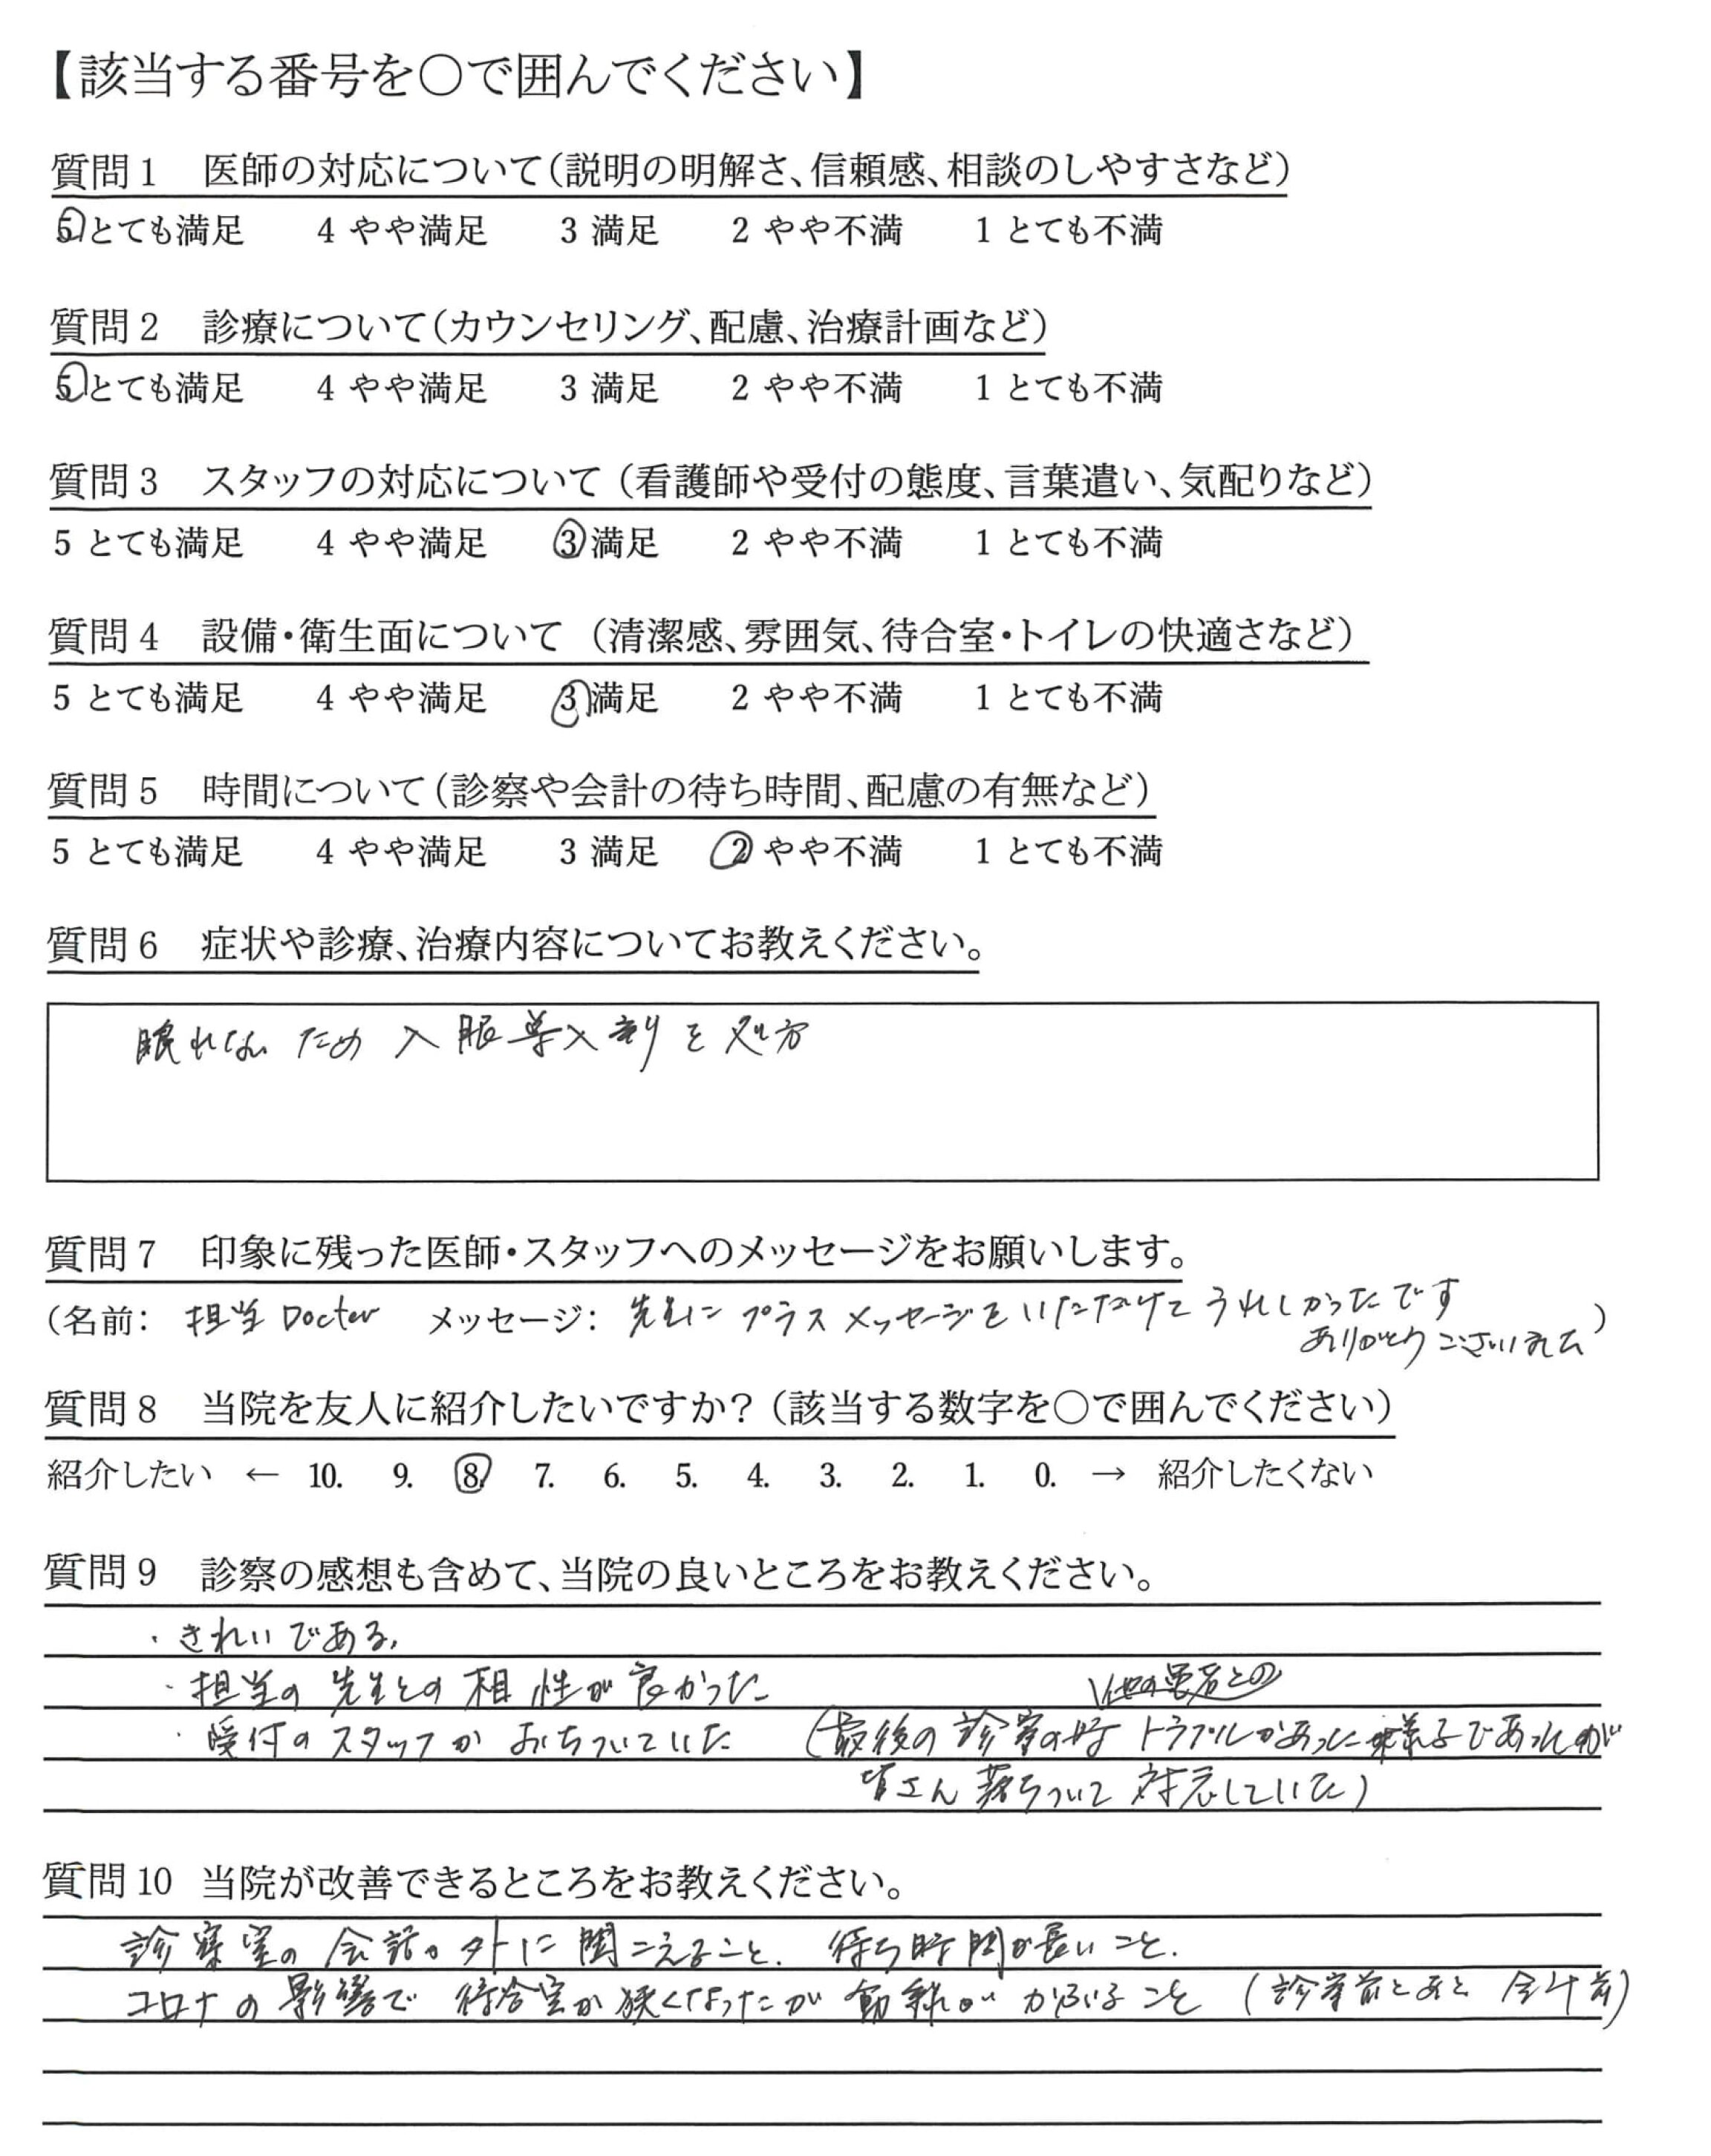 【該当する番号を○で囲んでください】
質問1 医師の対応について(説明の明解さ、信頼感、相談のしやすさなど)
5 とても満足 4 やや満足 3 満足 2 やや不満 1 とても不満
質問2 診療について(カウンセリング、配慮、治療計画など)
5 とても満足 4 やや満足 3 満足 2 やや不満 1 とても不満
質問3 スタッフの対応について(看護師や受付の態度、言葉遣い、気配りなど)
5 とても満足 4 やや満足 3 満足 2 やや不満 1 とても不満
質問4 設備・衛生面について(清潔感、雰囲気、待合室・トイレの快適さなど)
5 とても満足 4 やや満足 3 満足 2 やや不満 1 とても不満
質問5 時間について(診察や会計の待ち時間、配慮の有無など)
5 とても満足 4 やや満足 3 満足 2 やや不満 1 とても不満
質問6 症状や診療、治療内容についてお教えください。
眠れないため入眠導入剤を処方
質問7 印象に残った医師・スタッフへのメッセージをお願いします。
(名前: 担当Doctor メッセージ: 先生にプラスメッセージをいただけてうれしかったです
ありがとうございました)
質問8 当院を友人に紹介したいですか?(該当する数字を○で囲んでください)
紹介したい ← 10. 9. 8. 7. 6. 5. 4. 3. 2. 1. 0. → 紹介したくない
質問9 診察の感想も含めて、当院の良いところをお教えください。
・きれいである。
・担当の先生との相性が良かった
他の患者との
・受付のスタッフがおちついていた (最後の診察の時トラブルがあった様子であったが
皆さん落ちついて対応していた)
質問10 当院が改善できるところをお教えください。
診察室の会話が外に聞こえること。待ち時間が長いこと。
コロナの影響で待合室が狭くなったが動線がかぶること(診察前とあと 会計前)